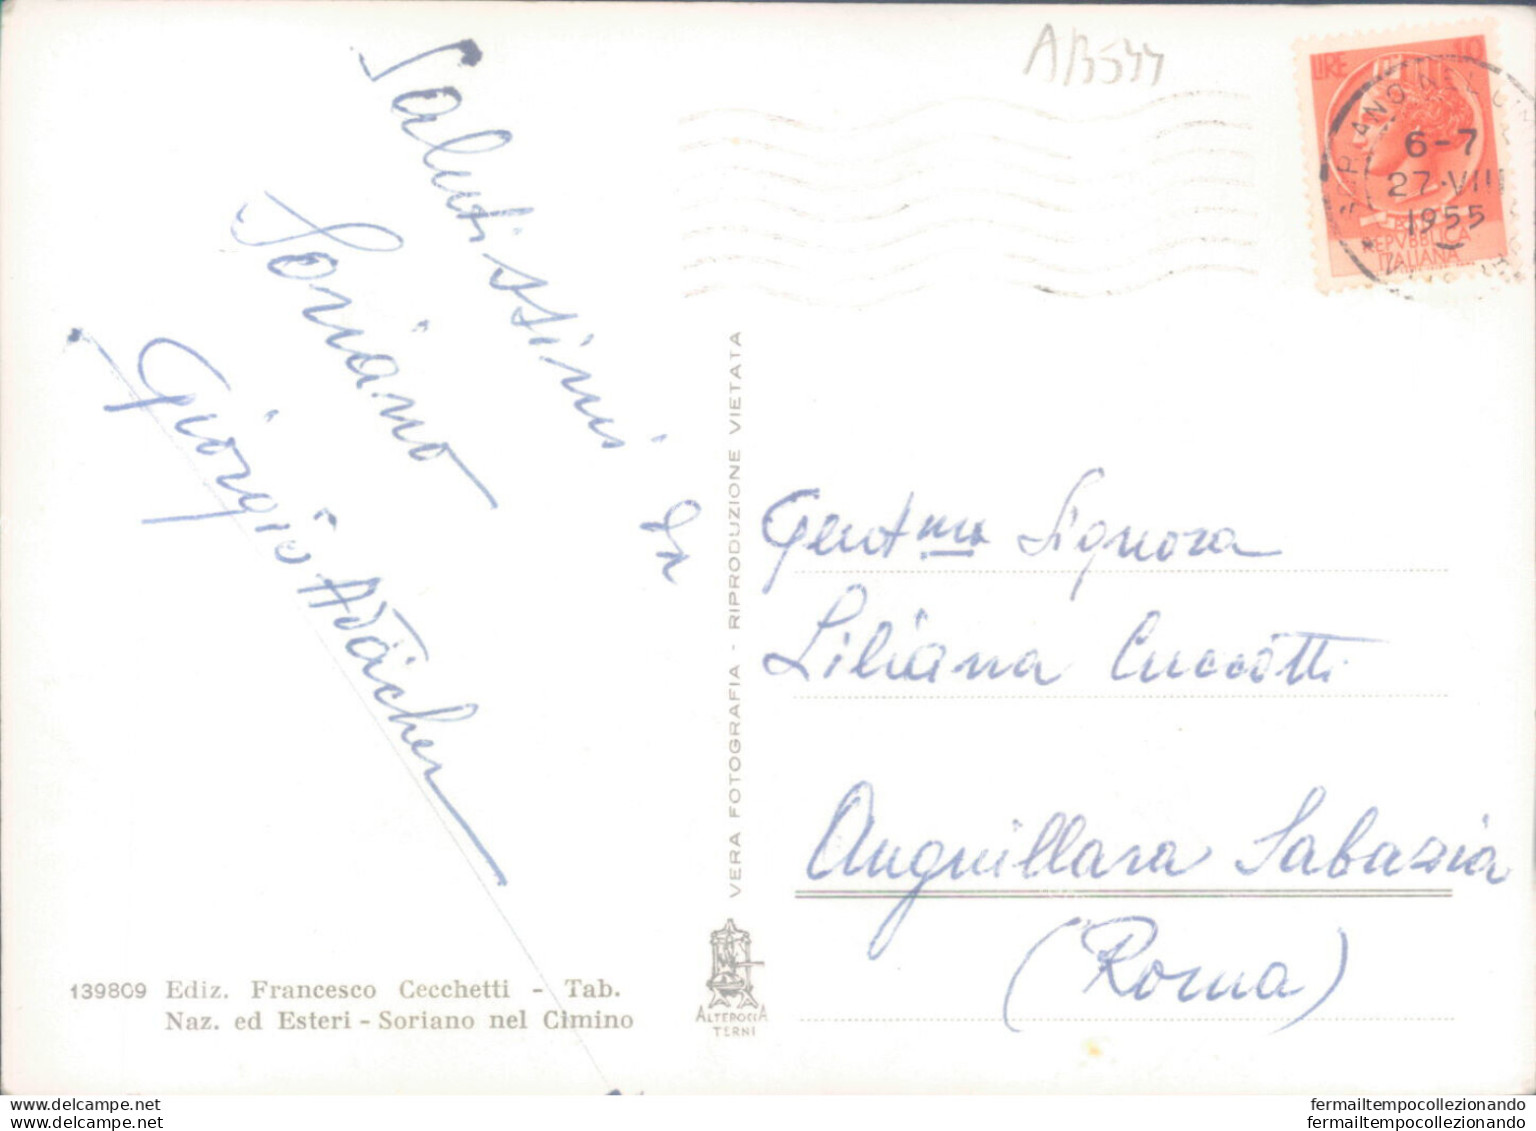 AB544
LIRE 10
SORIANO NEL CIM
6-7
27·VIII
1955
REPVBBLICA
ITALIANA
Salutissimi da
Soriano
Giorgio
VERA FOTOGRAFIA - RIPRODUZIONE VIETATA
Gent.ma Signora
Liliana Cuccotti
Anguillara Sabazia
(Roma)
139809 Ediz. Francesco Cecchetti - Tab.
Naz. ed Esteri - Soriano nel Cimino
ALTEROCCA
TERNI
www.delcampe.net
www.delcampe.net
fermailtempocollezionando
fermailtempocollezionando